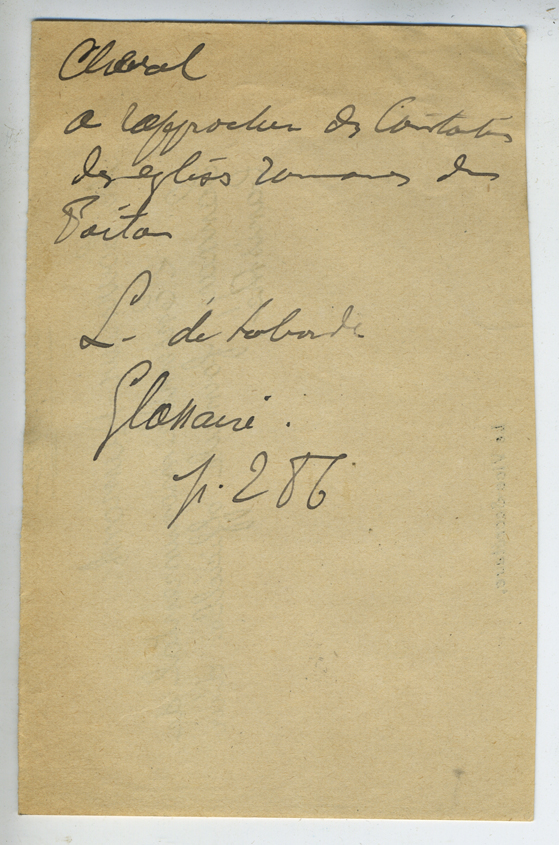 Cheval
a rapprocher des Constantin
des eglises romanes du
Poitou
L. de Laborde
Glossaire.
p. 286